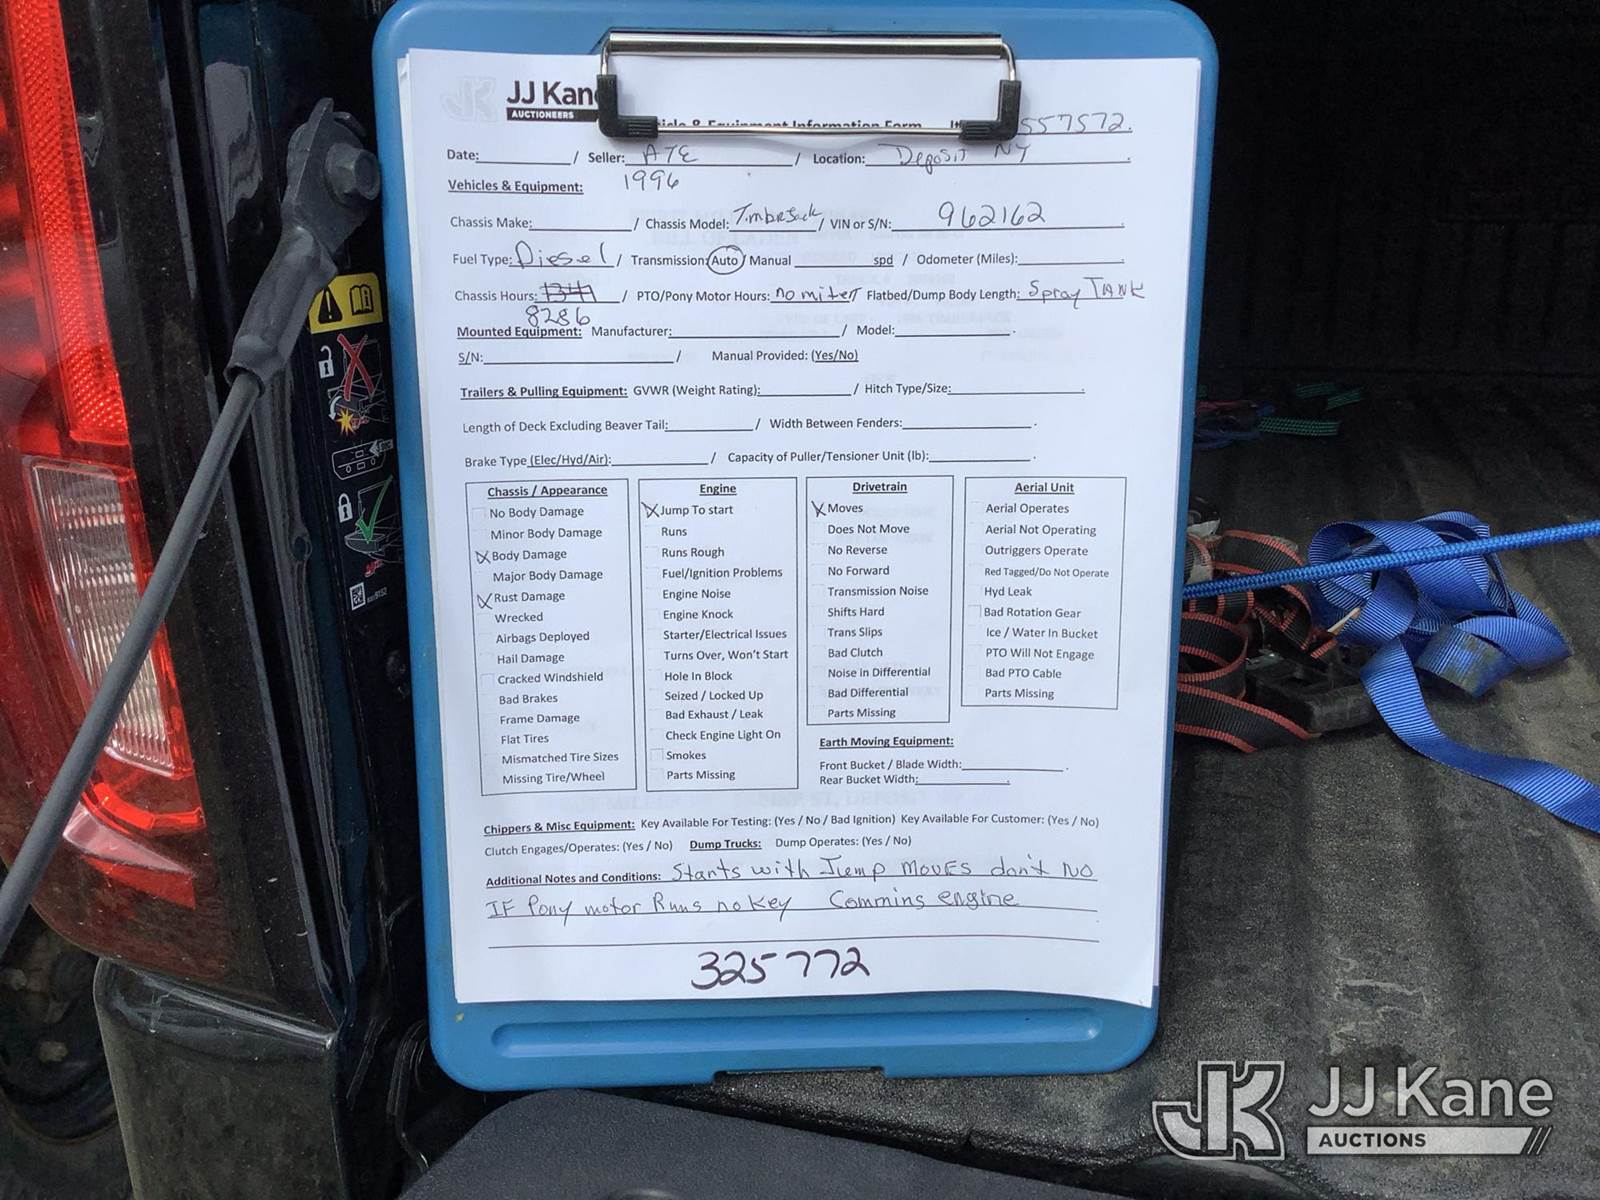 JJ Kane
AUCTIONEERS
& Equipment Information Form 557572.
Date: / Seller: ATE / Location: Deposit NY .
Vehicles & Equipment: 1996
Chassis Make: / Chassis Model: Timberjack / VIN or S/N: 962162 .
Fuel Type: Diesel / Transmission: Auto / Manual spd / Odometer (Miles): .
Chassis Hours: / PTO/Pony Motor Hours: no miter Flatbed/Dump Body Length: Spray TANK
8286
Mounted Equipment: Manufacturer: / Model: .
S/N: / Manual Provided: (Yes/No)
Trailers & Pulling Equipment: GVWR (Weight Rating): / Hitch Type/Size: .
Length of Deck Excluding Beaver Tail: / Width Between Fenders: .
Brake Type (Elec/Hyd/Air): / Capacity of Puller/Tensioner Unit (lb): .
Chassis / Appearance
No Body Damage
Minor Body Damage
X Body Damage
Major Body Damage
X Rust Damage
Wrecked
Airbags Deployed
Hail Damage
Cracked Windshield
Bad Brakes
Frame Damage
Flat Tires
Mismatched Tire Sizes
Missing Tire/Wheel
Engine
X Jump To start
Runs
Runs Rough
Fuel/Ignition Problems
Engine Noise
Engine Knock
Starter/Electrical Issues
Turns Over, Won't Start
Hole In Block
Seized / Locked Up
Bad Exhaust / Leak
Check Engine Light On
Smokes
Parts Missing
Drivetrain
X Moves
Does Not Move
No Reverse
No Forward
Transmission Noise
Shifts Hard
Trans Slips
Bad Clutch
Noise in Differential
Bad Differential
Parts Missing
Aerial Unit
Aerial Operates
Aerial Not Operating
Outriggers Operate
Red Tagged/Do Not Operate
Hyd Leak
Bad Rotation Gear
Ice / Water In Bucket
PTO Will Not Engage
Bad PTO Cable
Parts Missing
Earth Moving Equipment:
Front Bucket / Blade Width: .
Rear Bucket Width: .
Chippers & Misc Equipment: Key Available For Testing: (Yes / No / Bad Ignition) Key Available For Customer: (Yes / No)
Clutch Engages/Operates: (Yes / No) Dump Trucks: Dump Operates: (Yes / No)
Additional Notes and Conditions: Starts with Jump Moves don't No
IF Pony motor Runs no Key Commins engine
325772
JJ Kane
AUCTIONS